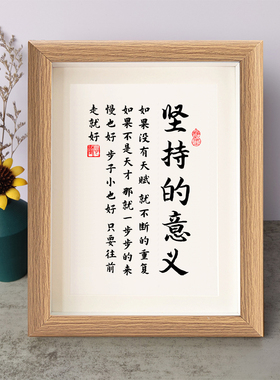 坚持的意义
如果没有天赋 就不断的重复
如果不是天才 那就一步步的来
慢也好 步子小也好 只要往前
走就好